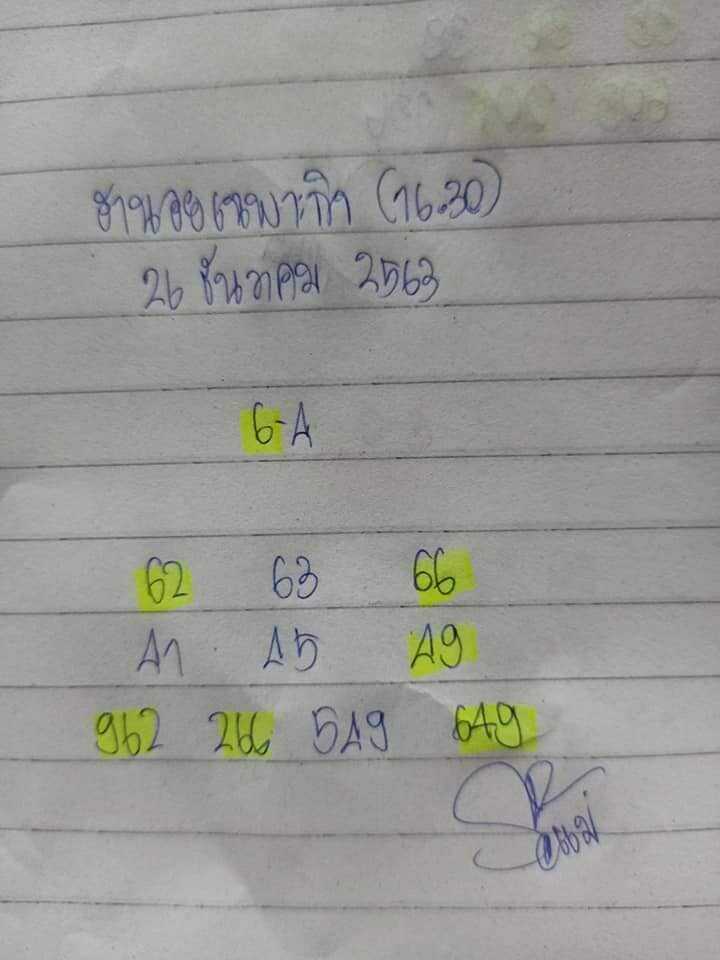 ฮานอยเฉพาะกิจ (16.30)
26 ธันวาคม 2563
6-4
62 63 66
41 45 49
962 266 549 649